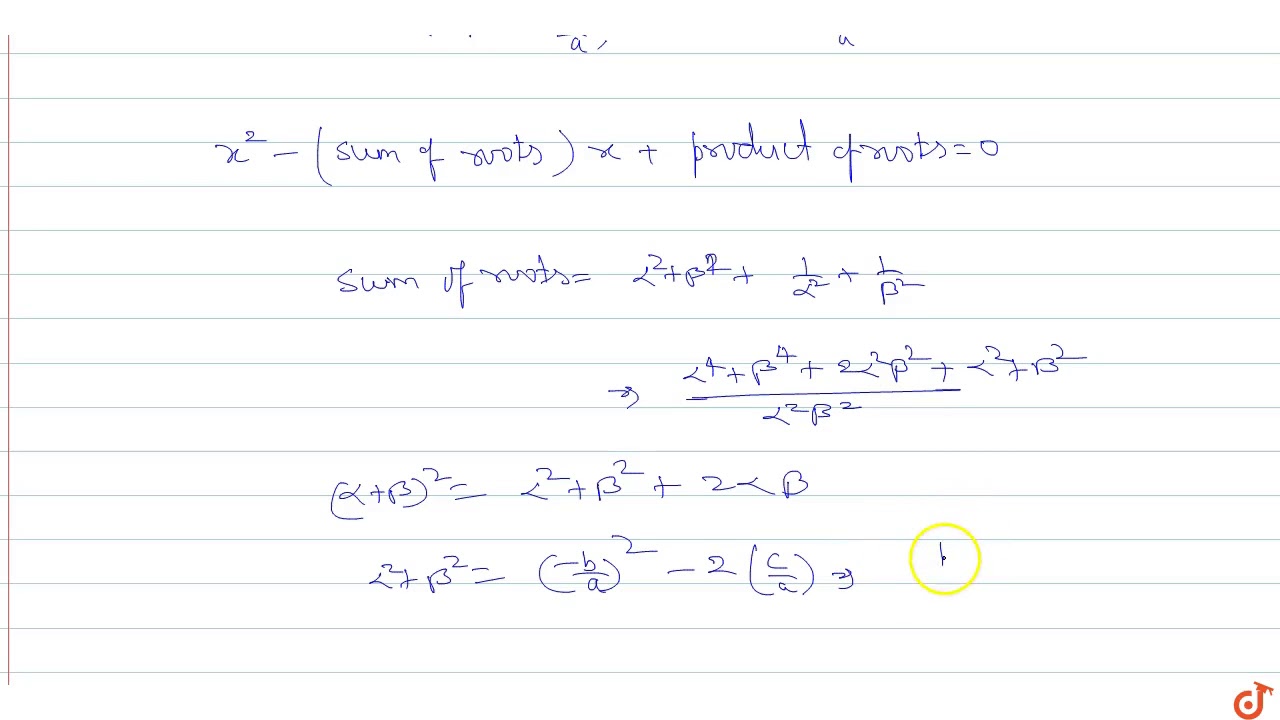 -a, a
x² - (sum of roots) x + product of roots = 0
sum of roots = α² + β² + 1/α² + 1/β²
⇒ (α⁴ + β⁴ + 2α²β² + α² + β²)/(α²β²)
(α + β)² = α² + β² + 2αβ
α² + β² = (-b/a)² - 2(c/a) ⇒